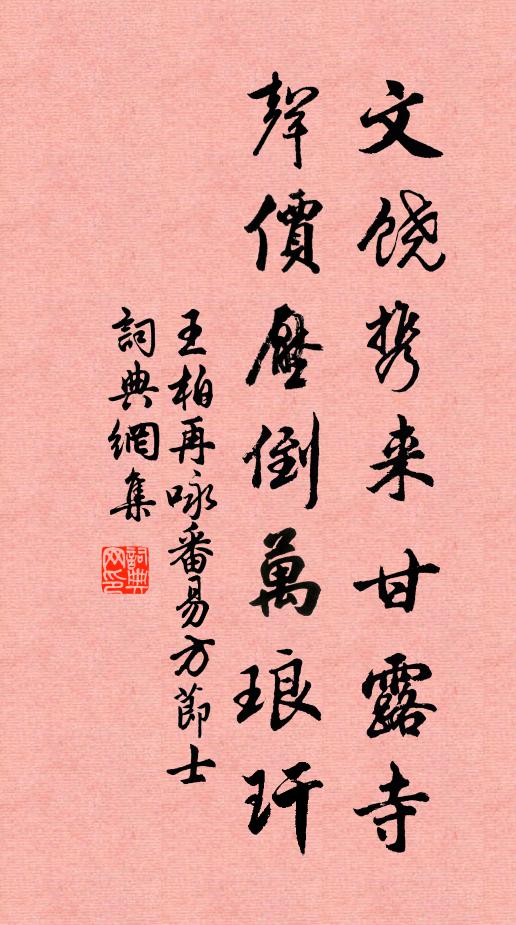 文饶携来甘露寺
聲價壓倒萬琅玕
王柏再咏番易方節士
詞典網集
詞典网印